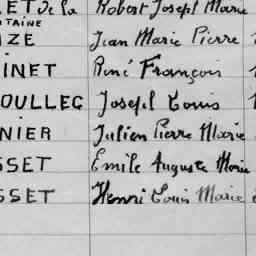 LET de la Robert Joseph Marie
NTAINE
IZE Jean Marie Pierre
INET René François
OULLEC Joseph Louis
NIER Julien Pierre Marie
SSET Emile Auguste Marie
SSET Henri Louis Marie